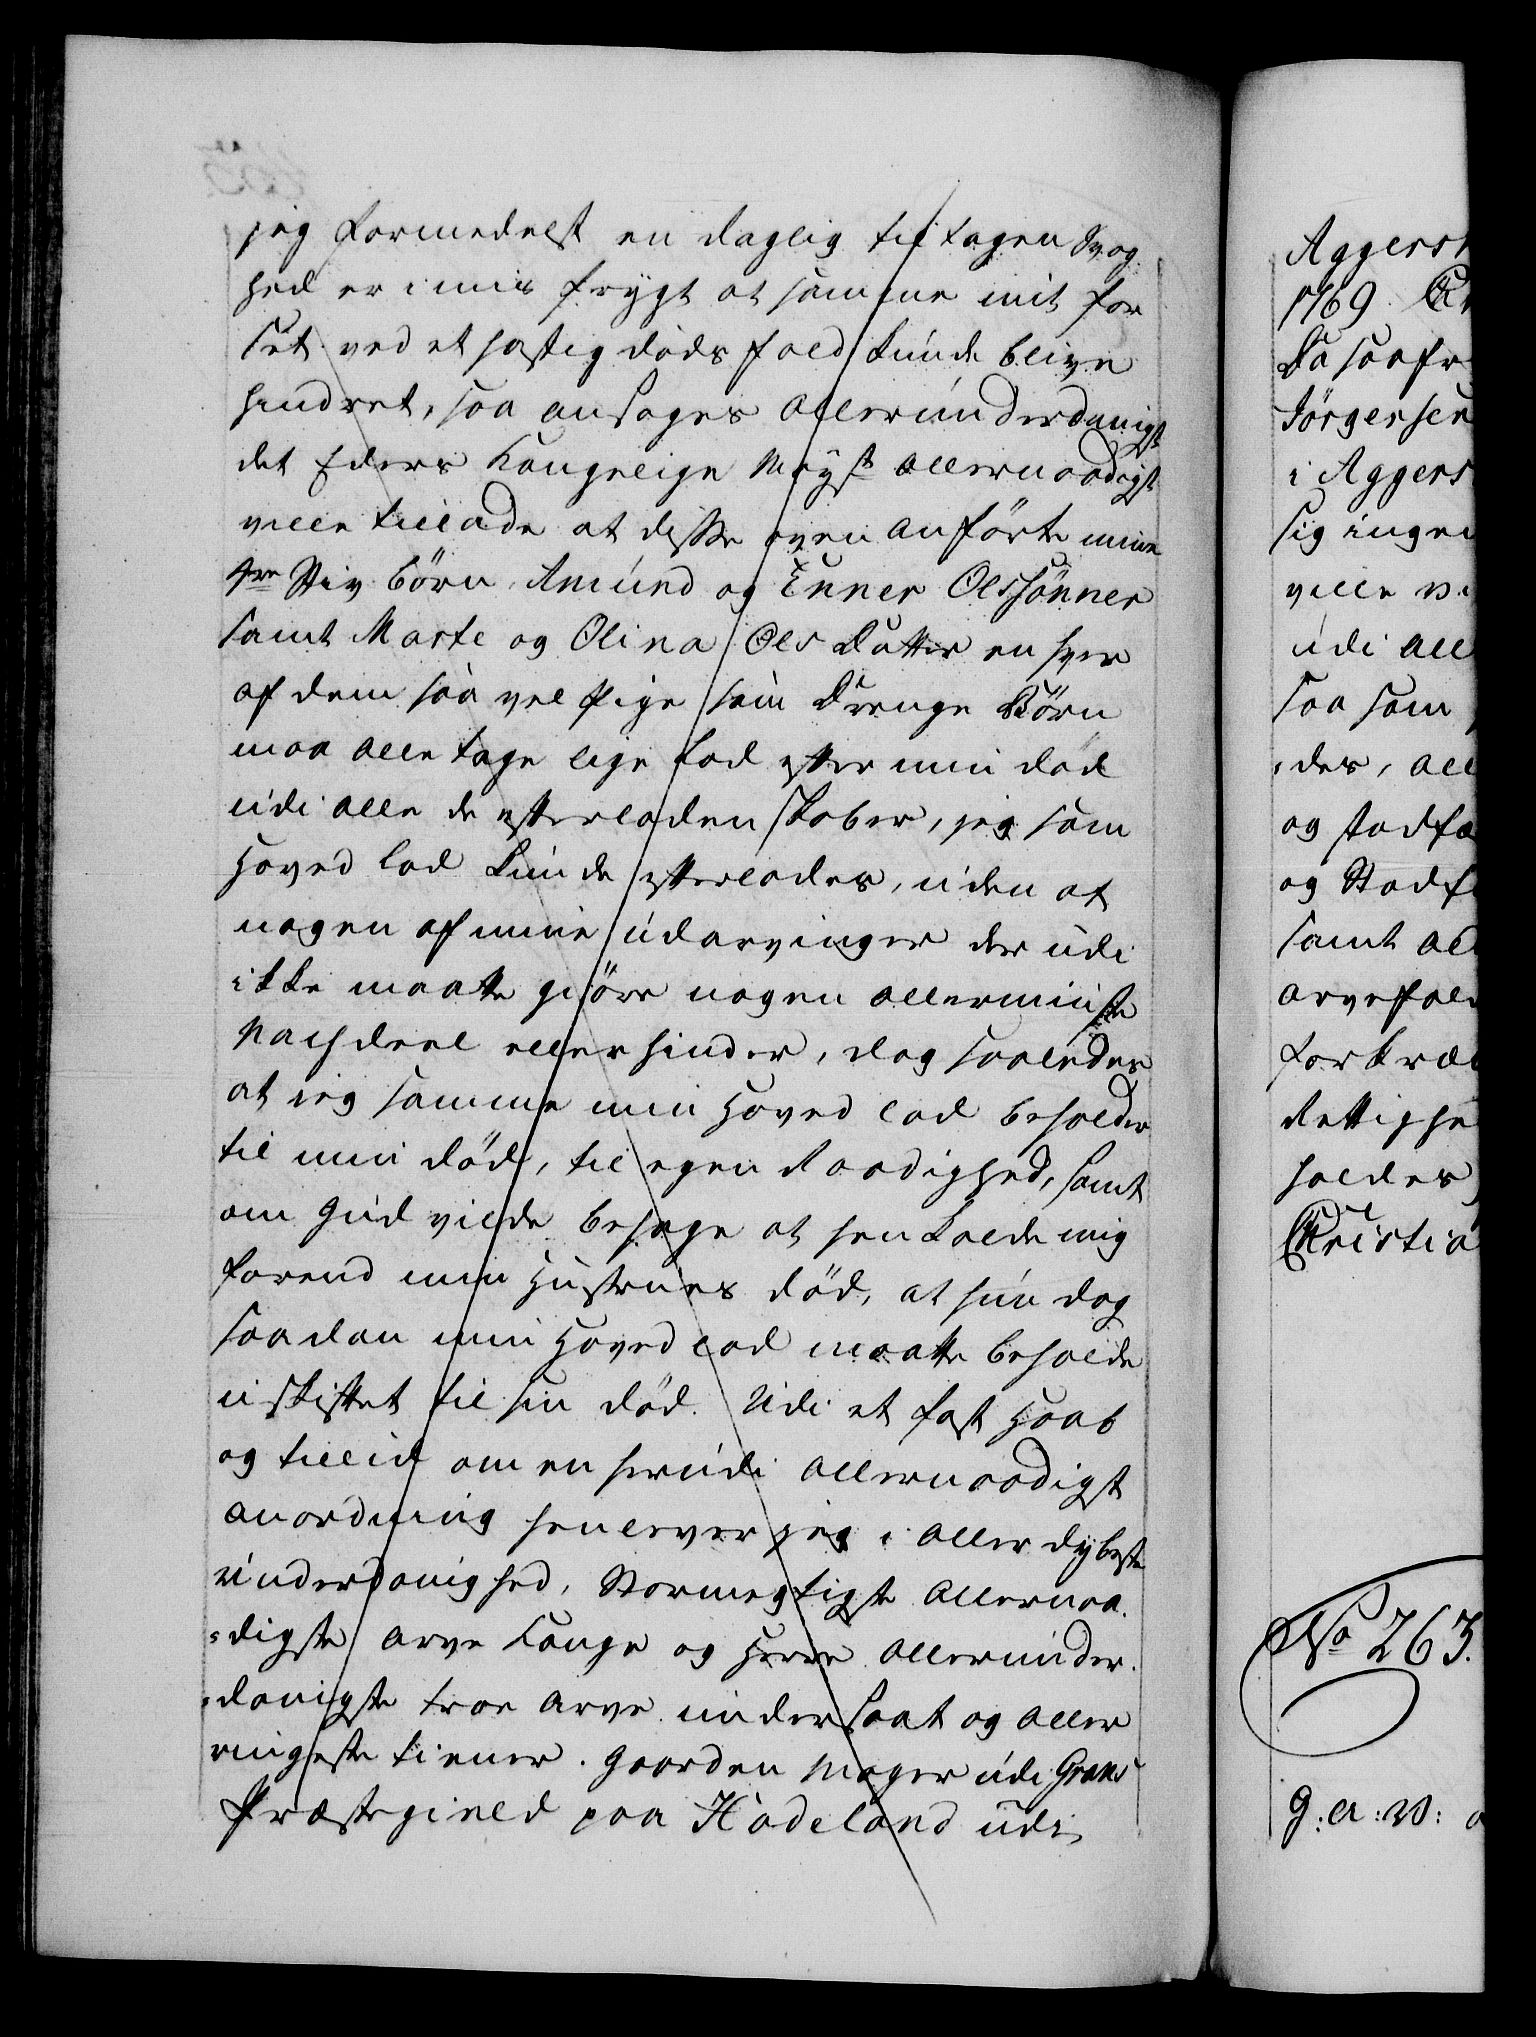 jeg formedelst en daglig tiltagen Svag
hed er i mis frygt at samme mit for
set ved et hastig dødsfald kunde blive
hindret, saa ansøges allerunderdanigst
det Eders Kongelige Mayst allernaadigst
ville tillade at disse oven anførte mine
fire Stiv börn Amund og Enner Olssønner
samt Marte og Olina Ols Datter en hver
af dem saa vel Pige som Drenge Börn
maa alle tage lige lod efter min död
udi alle de efterladenskaber, jeg som
Hoved lod kunde efterlades, uden at
nogen af mine udarvinger der udi
ikke maatte giöre nogen allermindste
Nachdeel eller hinder, dog saaledes
at ieg samme min Hoved lod beholder
til min död, til egen Raadighed, samt
om Gud vilde behage at henkalde mig
forend min Hustrues död, at hun dog
saadan min Hoved lod maatte beholde
uskiftet til sin död. Udi et fast Haab
og tillid om en herudi allernaadigst
anordning henlever jeg i aller dybeste
underdanighed, Stormegtigste Allernaa-
-digste Arve Konge og Herre Allerunder-
-danigste troe arve undersaat og aller
ringeste tiener. Gaarden Mager udi Grans
Præstegield paa Hadeland udi
Aggersh
1769
Da saasom
Jörgensen
i Aggers
sig ingen
ville
udi all
saa som
-des, all
og stadfæ
og Stadf
samt al
arvefald
forkræ
Rettighe
holdes
Christia
No 263.
G: A: W: